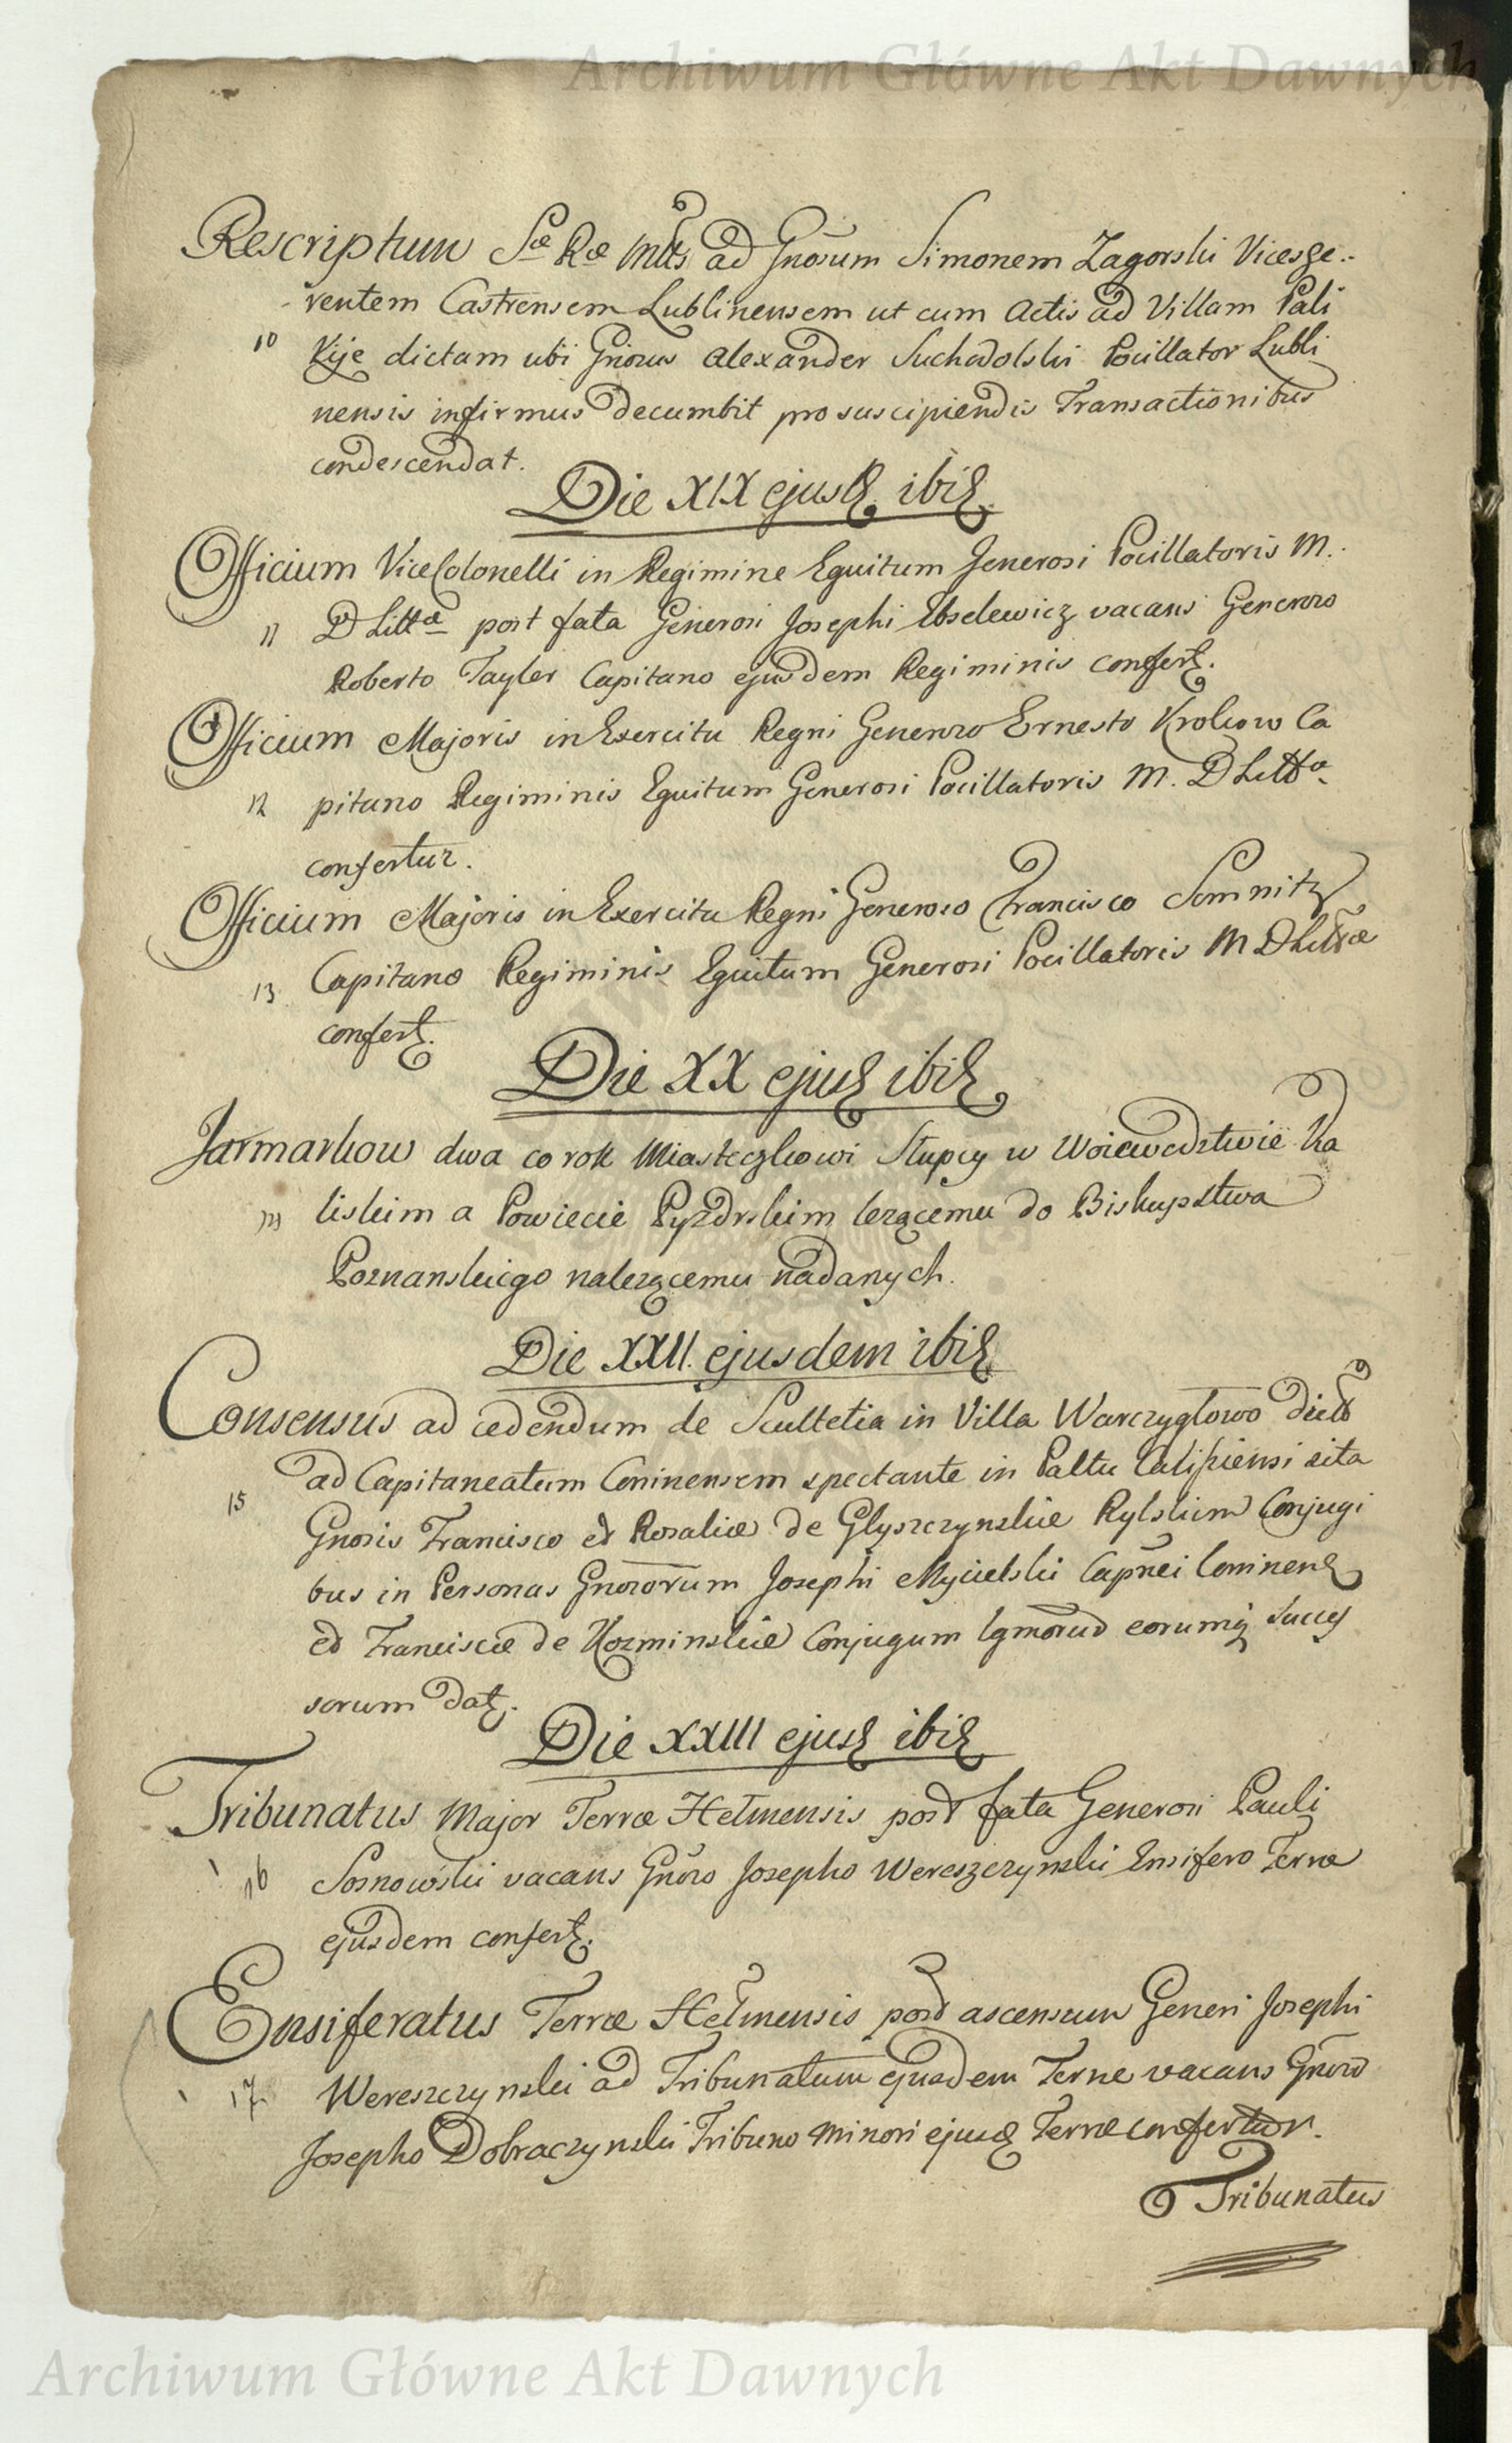 Archiwum Główne Akt Dawnych
Rescriptum Sæ Ræ Mttis ad Gnosum Simonem Zagorski Vicesge-
rentem Castrensem Lublinensem ut cum Actis ad Villam Pali
10 Kije dictam ubi Gnosus Alexander Suchodolski Pocillator Lubli
nensis infirmus decumbit pro suscipiendis Transactionibus
condescendat.
Die XIX ejusd. ibid.
Officium ViceColonelli in Regimine Equitum Generosi Pocillatoris M.
11 D Littæ post fata Generosi Josephi vacans Generoso
Roberto Tayler Capitano ejusdem Regiminis confert.
Officium Majoris in Exercitu Regni Generoso Ernesto Krokow Ca
12 pitano Regiminis Equitum Generosi Pocillatoris M. D Littæ
confertur.
Officium Majoris in Exercitu Regni Generoso Francisco Somnitz
13 Capitano Regiminis Equitum Generosi Pocillatoris M D Littæ
confert.
Die XX ejusd ibid
Jarmarkow dwa co rok Miasteczkowi Słupcy w Woiewodztwie Ka
14 liskim a Powiecie Pyzdrskim lezącemu do Biskupstwa
Poznanskiego nalezącemu nadanych.
Die XXII. ejusdem ibid
Consensus ad cedendum de Scultetia in Villa Warczygłowo dicta
ad Capitaneatum Coninensem spectante in Paltu Calisiensi sita
15 Gnosis Francisco et Rosaliæ de Glyszczynskie Rylskim Conjugi
bus in Personas Gnosorum Josephi Mycielski Capnei Coninens
et Franciscæ de Kozminskie Conjugum Igmorud eorumq Succes
sorum dat.
Die XXIII ejusd ibid
Tribunatus Major Terræ Hełmensis post fata Generosi Pauli
16 Sosnowski vacans Gnoso Josepho Wereszczynski Ensifero Terræ
ejusdem confert.
Ensiferatus Terræ Hełmensis post ascensum Generi Josephi
17 Wereszczynski ad Tribunatum ejusdem Terræ vacans Gnoso
Josepho Dobraczynski Tribuno Minori ejusd Terræ confertur.
Tribunatus
Archiwum Główne Akt Dawnych